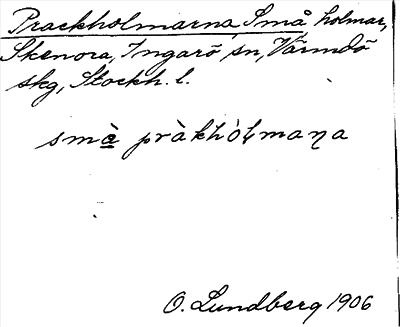 Prackholmarna, Små holmar,
Skenora, Ingarö sn, Värmdö
skg, Stockh. l.
smà̲ pràkhòḷmaɳa
O. Lundberg 1906